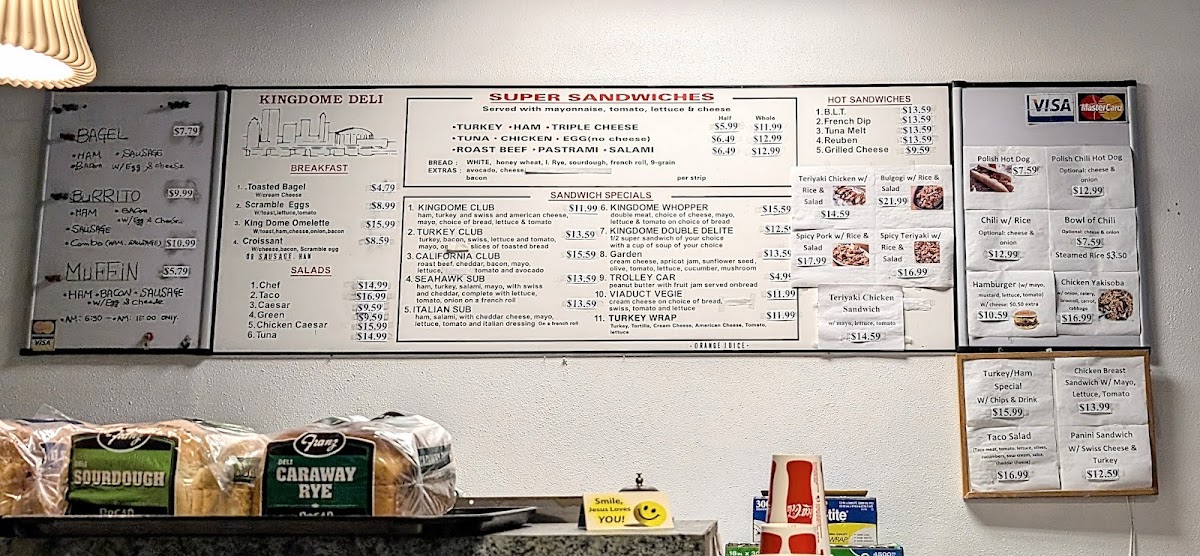 BAGEL $7.79
•HAM •SAUSAGE
•BACON W/Egg &cheese
BURRITO $9.99
•HAM •BACON
w/Egg &Cheese
SAUSAGE
•Combo (HAM, SAUSAGE) $10.99
MUFFIN $5.79
•HAM•BACON•SAUSAGE
•w/Egg &Cheese
•AM: 6:30 - •AM: 10:00 ONLY.
VISA
KINGDOME DELI
BREAKFAST
1. .Toasted Bagel $4.79
W/cream Cheese
2. Scramble Eggs $8.99
W/toast,lettuce,tomato
3. King Dome Omelette $15.99
W/toast,ham,cheese,onion,bacon
4. Croissant $8.59
W/cheese,bacon, Scramble egg
OR SAUSAGE, HAM
SALADS
1.Chef $14.99
2.Taco $16.99
3.Caesar $9.59
4.Green $9.59
5.Chicken Caesar $15.99
6.Tuna $14.99
SUPER SANDWICHES
Served with mayonnaise, tomato, lettuce & cheese
Half Whole
•TURKEY •HAM •TRIPLE CHEESE $5.99 $11.99
•TUNA •CHICKEN •EGG(no cheese) $6.49 $12.99
•ROAST BEEF •PASTRAMI •SALAMI $6.49 $12.99
BREAD : WHITE, honey wheat, l. Rye, sourdough, french roll, 9-grain
EXTRAS : avocado, cheese
bacon per strip
SANDWICH SPECIALS
1. KINGDOME CLUB $11.99
ham, turkey and swiss and american cheese,
mayo, choice of bread, lettuce & tomato
2. TURKEY CLUB $13.59
turkey, bacon, swiss, lettuce and tomato,
mayo, on slices of toasted bread
3. CALIFORNIA CLUB $15.59
roast beef, cheddar, bacon, mayo,
lettuce, tomato and avocado
4. SEAHAWK SUB $13.59
ham, turkey, salami, mayo, with swiss
and cheddar, complete with lettuce,
tomato, onion on a french roll
5. ITALIAN SUB $13.59
ham, salami, with cheddar cheese, mayo,
lettuce, tomato and italian dressing On a french roll
6. KINGDOME WHOPPER $15.59
double meat, choice of cheese, mayo,
lettuce & tomato on choice of bread
7. KINGDOME DOUBLE DELITE $12.5
1/2 super sandwich of your choice
with a cup of soup of your choice
8. Garden $13.5
cream cheese, apricot jam, sunflower seed,
olive, tomato, lettuce, cucumber, mushroom
9. TROLLEY CAR $4.9
peanut butter with fruit jam served onbread
10. VIADUCT VEGIE $11.99
cream cheese on choice of bread,
swiss, tomato and lettuce
11. TURKEY WRAP $11.99
Turkey, Tortilla, Cream Cheese, American Cheese, Tomato,
lettuce
-ORANGE JUICE-
HOT SANDWICHES
1.B.L.T. $13.59
2.French Dip $13.59
3.Tuna Melt $13.59
4.Reuben $13.59
5.Grilled Cheese $9.59
Teriyaki Chicken w/
Rice &
Salad
$14.59
Bulgogi w/ Rice &
Salad
$21.99
Spicy Pork w/ Rice &
Salad
$17.99
Spicy Teriyaki w/
Rice &
Salad
$16.99
Teriyaki Chicken
Sandwich
w/ mayo, lettuce, tomato
$14.59
VISA MasterCard
Polish Hot Dog
$7.59
Polish Chili Hot Dog
Optional: cheese &
onion
$12.99
Chili w/ Rice
Optional: cheese &
onion
$12.99
Bowl of Chili
Optional: cheese &
onion
$7.59
Steamed Rice $3.50
Hamburger (w/ mayo,
mustard, lettuce, tomato)
W/ cheese: $0.50 extra
$10.59
Chicken Yakisoba
w/ onion, celery,
broccoli, carrot,
cabbage
$16.99
Turkey/Ham
Special
W/ Chips & Drink
$15.99
Chicken Breast
Sandwich W/ Mayo,
Lettuce, Tomato
$13.99
Taco Salad
(Taco meat, tomato, lettuce, olives,
cucumbers, sour cream, salsa,
cheddar cheese)
$16.99
Panini Sandwich
W/ Swiss Cheese &
Turkey
$12.59
Franz
DELI
SOURDOUGH
BREAD
Franz
DELI
CARAWAY
RYE
BREAD
Smile,
Jesus Loves
YOU!
Coca-Cola